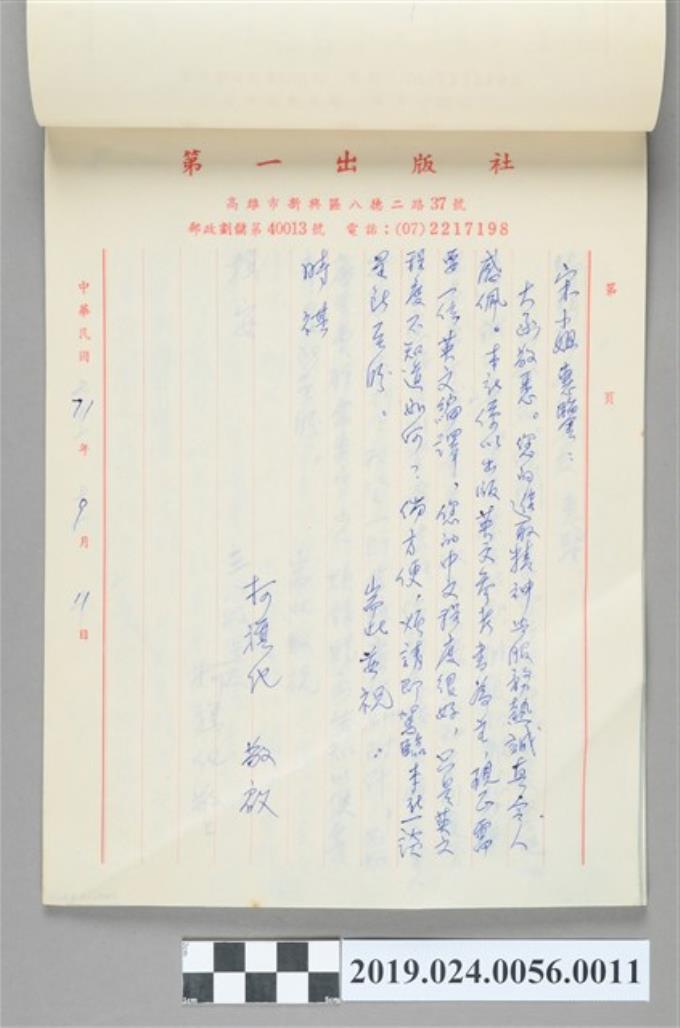 第一出版社
高雄市新興區八德二路37號
郵政劃儲第40013號 電話：(07)2217198
第 頁
宋小姐惠鑒：
大函敬悉。您的進取精神與服務熱誠真令人
感佩。本社係以出版英文參考書為主，現正需
要一位英文編譯，您的中文程度很好，只是英文
程度不知道如何？倘方便，煩請即駕臨本社一談
是所至盼。 耑此並祝。
時祺
柯旗化 敬啟
中華民國71年9月11日
2019.024.0056.0011